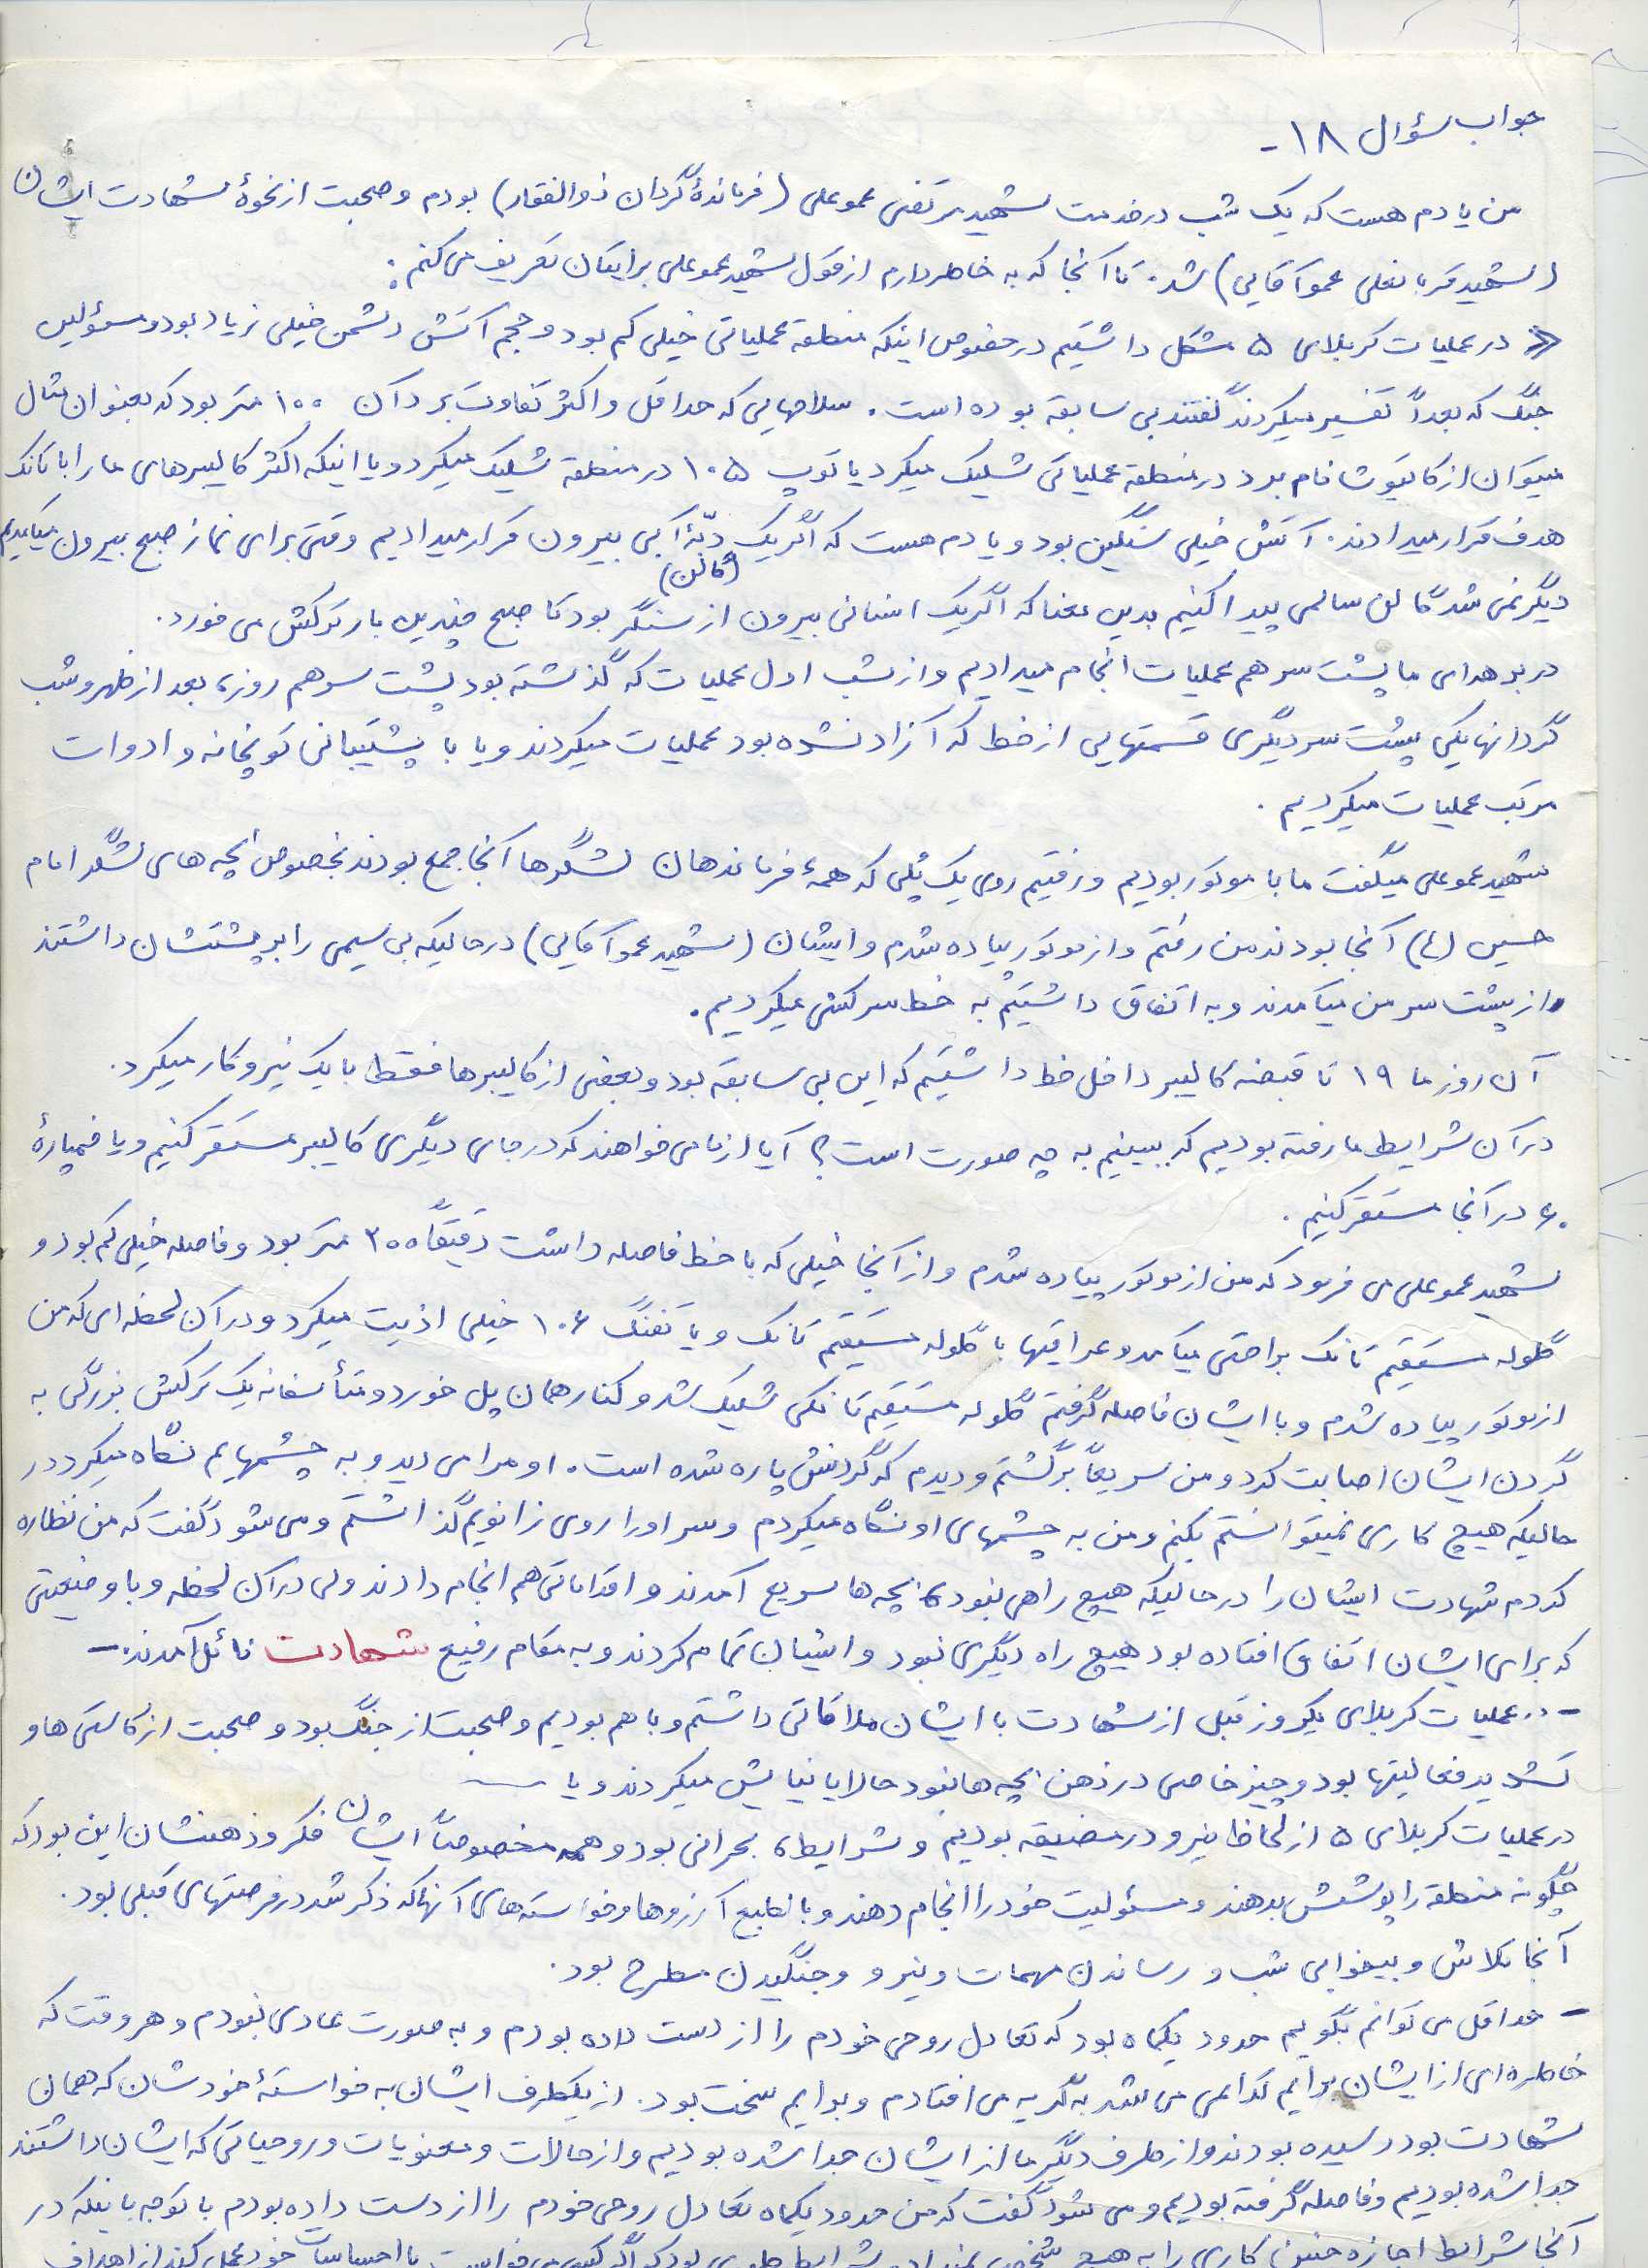 جواب سؤال ۱۸ -
من یادم هست که یک شب در خدمت شهید مرتضی عموعلی (فرماندهٔ گردان ذوالفقار) بودم و صحبت از نحوهٔ شهادت ایشان
(شهید قربانعلی عموآقایی) شد. تا آنجا که به خاطر دارم از قول شهید عموعلی برایتان تعریف می کنم:
« در عملیات کربلای ۵ مشکل داشتیم در خصوص اینکه منطقه عملیاتی خیلی کم بود و حجم آتش دشمن خیلی زیاد بود و مسؤلین
جنگ که بعداً تفسیر میکردند گفتند بی سابقه بوده است. سلاحهایی که حداقل و اکثر تفاوت برد آن ۱۰۰ متر بود که بعنوان مثال
میتوان از کاتیوشا نام برد در منطقه عملیاتی شلیک میکرد یا توپ ۱۰۵ در منطقه شلیک میکرد و یا اینکه اکثر کالیبرهای ما را با تانک
هدف قرار میدادند. آتش خیلی سنگین بود و یادم هست که اگر یک دبّهٔ آبی بیرون قرار میدادیم وقتی برای نماز صبح بیرون میآمدیم
(گالن)
دیگر نمی شد گالن سالمی پیدا کنیم بدین معنا که اگر یک انسانی بیرون از سنگر بود تا صبح چندین بار ترکش می خورد.
در برهه‌ای ما پشت سر هم عملیات انجام میدادیم و از شب اول عملیات که گذشته بود پشت سر هم روز، بعد از ظهر و شب
گردانها یکی پشت سر دیگری قسمتهایی از خط که آزاد نشده بود عملیات میکردند و یا با پشتیبانی توپخانه و ادوات
مرتب عملیات میکردیم.
شهید عموعلی میگفت ما با موتور بودیم و رفتیم روی یک پُلی که همهٔ فرماندهان لشگرها آنجا جمع بودند بخصوص بچه های لشگر امام
حسین (ع) آنجا بودند من رفتم و از موتور پیاده شدم و ایشان (شهید عموآقایی) در حالیکه بی سیمی را بر پشتشان داشتند
از پشت سر من میآمدند و به اتفاق داشتیم به خط سرکشی میکردیم.
آن روز ما ۱۹ تا قبضه کالیبر داخل خط داشتیم که این بی سابقه بود و بعضی از کالیبرها فقط با یک نیرو کار میکرد.
در آن شرایط ما رفته بودیم که ببینیم به چه صورت است؟ آیا از ما می خواهند که در جای دیگری کالیبر مستقر کنیم و یا خمپارهٔ
۶۰ در آنجا مستقر کنیم.
شهید عموعلی می فرمود که من از موتور پیاده شدم و از آنجا خیلی که با خط فاصله داشت دقیقاً ۳۰۰ متر بود و فاصله خیلی کم بود و
گلوله مستقیم تانک براحتی میآمد و عراقیها با گلوله مستقیم تانک و یا تفنگ ۱۰۶ خیلی اذیت میکرد و در آن لحظه ای که من
از موتور پیاده شدم و با ایشان فاصله گرفتم گلوله مستقیم تانکی شلیک شد و کنار همان پل خورد و متأسفانه یک ترکش بزرگی به
گردن ایشان اصابت کرد و من سریعاً برگشتم و دیدم که گردنش پاره شده است. او مرا می دید و به چشمهایم نگاه میکرد در
حالیکه هیچ کاری نمیتوانستم بکنم و من به چشمهای او نگاه میکردم و سر او را روی زانویم گذاشتم و می شود گفت که من نظاره
کردم شهادت ایشان را در حالیکه هیچ راهی نبود، بچه ها سریع آمدند و اقداماتی هم انجام دادند ولی در آن لحظه و با وضعیتی
که برای ایشان اتفاق افتاده بود هیچ راه دیگری نبود و ایشان تمام کردند و به مقام رفیع شهادت نائل آمدند. -
- در عملیات کربلای یکروز قبل از شهادت با ایشان ملاقاتی داشتم و با هم بودیم و صحبت از جنگ بود و صحبت از کاستی ها و
تشدید فعالیتها بود و چیز خاصی در ذهن بچه ها نبود حالا یا نیایش میکردند و یا
در عملیات کربلای ۵ از لحاظ نیرو در مضیقه بودیم و شرایط، بحرانی بود و همه مخصوصاً ایشان فکر و ذهنشان این بود که
چگونه منطقه را پوشش بدهند و مسئولیت خود را انجام دهند و بالطبع آرزوها و خواسته های آنها که ذکر شد در فرصتهای قبلی بود.
آنجا تلاش و بیخوابی شب و رساندن مهمات و نیرو و جنگیدن مطرح بود.
- حداقل می توانم بگویم حدود یکماه بود که تعادل روحی خودم را از دست داده بودم و به صورت عادی نبودم و هر وقت که
خاطره ای از ایشان برایم تداعی می شد به گریه می افتادم و برایم سخت بود. از یکطرف ایشان به خواستهٔ خودشان که همان
شهادت بود رسیده بودند و از طرف دیگر ما از ایشان جدا شده بودیم و از حالات و معنویات و روحیاتی که ایشان داشتند
جدا شده بودیم و فاصله گرفته بودیم و می شود گفت که من حدود یکماه تعادل روحی خودم را از دست داده بودم با توجه باینکه در
آنجا شرایط اجازه چنین کاری را به هیچ شخصی نمیداد شرایط طوری بود که اگر کسی می خواست با احساسات خود عمل کند از اهداف